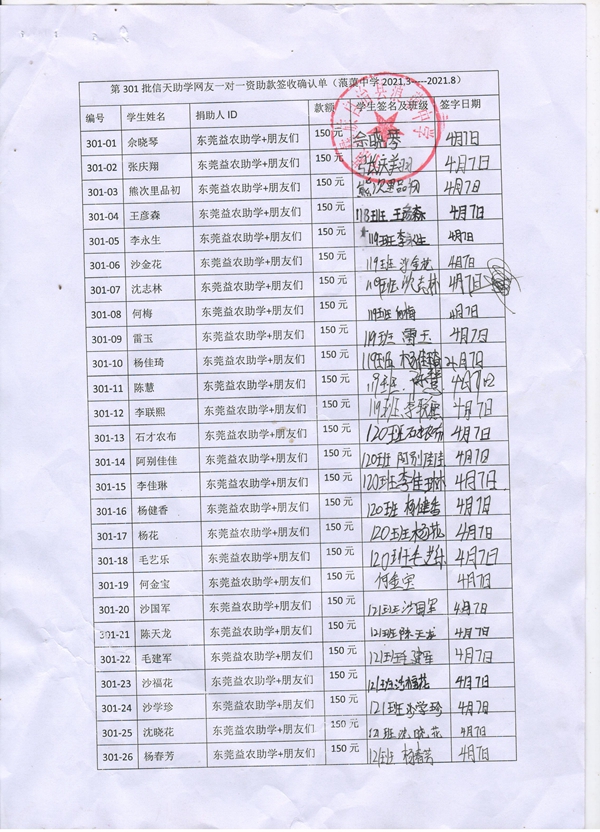 第 301 批信天助学网友一对一资助款签收确认单（蒗蕖中学 2021.3-----2021.8）
编号 学生姓名 捐助人 ID 款额 学生签名及班级 签字日期
301-01 余晓琴 东莞益农助学+朋友们 150 元 余晓琴 4月7日
301-02 张庆翔 东莞益农助学+朋友们 150 元 张庆翔 4月7日
301-03 熊次里品初 东莞益农助学+朋友们 150 元 熊次里品初 4月7日
301-04 王彦森 东莞益农助学+朋友们 150 元 118班 王彦森 4月7日
301-05 李永生 东莞益农助学+朋友们 150 元 119班李永生 4月7日
301-06 沙金花 东莞益农助学+朋友们 150 元 119班 沙金花 4月7日
301-07 沈志林 东莞益农助学+朋友们 150 元 119班 沈志林 4月7日
301-08 何梅 东莞益农助学+朋友们 150 元 119班 何梅 4月7日
301-09 雷玉 东莞益农助学+朋友们 150 元 119班 雷玉 4月7日
301-10 杨佳琦 东莞益农助学+朋友们 150 元 119班 杨佳琦 4月7日
301-11 陈慧 东莞益农助学+朋友们 150 元 119班 陈慧 4月7日
301-12 李联熙 东莞益农助学+朋友们 150 元 119班 李联熙 4月7日
301-13 石才农布 东莞益农助学+朋友们 150 元 120班石才农布 4月7日
301-14 阿别佳佳 东莞益农助学+朋友们 150 元 120班 阿别佳佳 4月7日
301-15 李佳琳 东莞益农助学+朋友们 150 元 120班李佳琳 4月7日
301-16 杨健香 东莞益农助学+朋友们 150 元 120班 杨健香 4月7日
301-17 杨花 东莞益农助学+朋友们 150 元 120班杨花 4月7日
301-18 毛艺乐 东莞益农助学+朋友们 150 元 120班毛艺乐 4月7日
301-19 何金宝 东莞益农助学+朋友们 150 元 何金宝 4月7日
301-20 沙国军 东莞益农助学+朋友们 150 元 121班 沙国军 4月7日
301-21 陈天龙 东莞益农助学+朋友们 150 元 121班 陈天龙 4月7日
301-22 毛建军 东莞益农助学+朋友们 150 元 121班毛建军 4月7日
301-23 沙福花 东莞益农助学+朋友们 150 元 121班沙福花 4月7日
301-24 沙学珍 东莞益农助学+朋友们 150 元 121班沙学珍 4月7日
301-25 沈晓花 东莞益农助学+朋友们 150 元 121班沈晓花 4月7日
301-26 杨春芳 东莞益农助学+朋友们 150 元 121班 杨春芳 4月7日